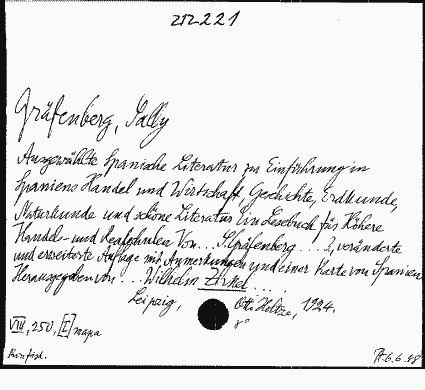 212221
Gräfenberg, Sally
Ausgewählte Spanische Literatur zu Einführung in
Spaniens Handel und Wirtschaft, Geschichte, Erdkunde,
Naturkunde und schöne Literatur Ein Lesebuch für Höhere
Handel- und Realschulen Von ... S. Gräfenberg ... 2, veränderte
und erweiterte Auflage mit Anmerkungen und einer Karte von Spanien
Herausgegeben von ... Wilhelm ...
Leipzig, Otto Holtze, 1924.
8°
VIII, 250, [1] mapa